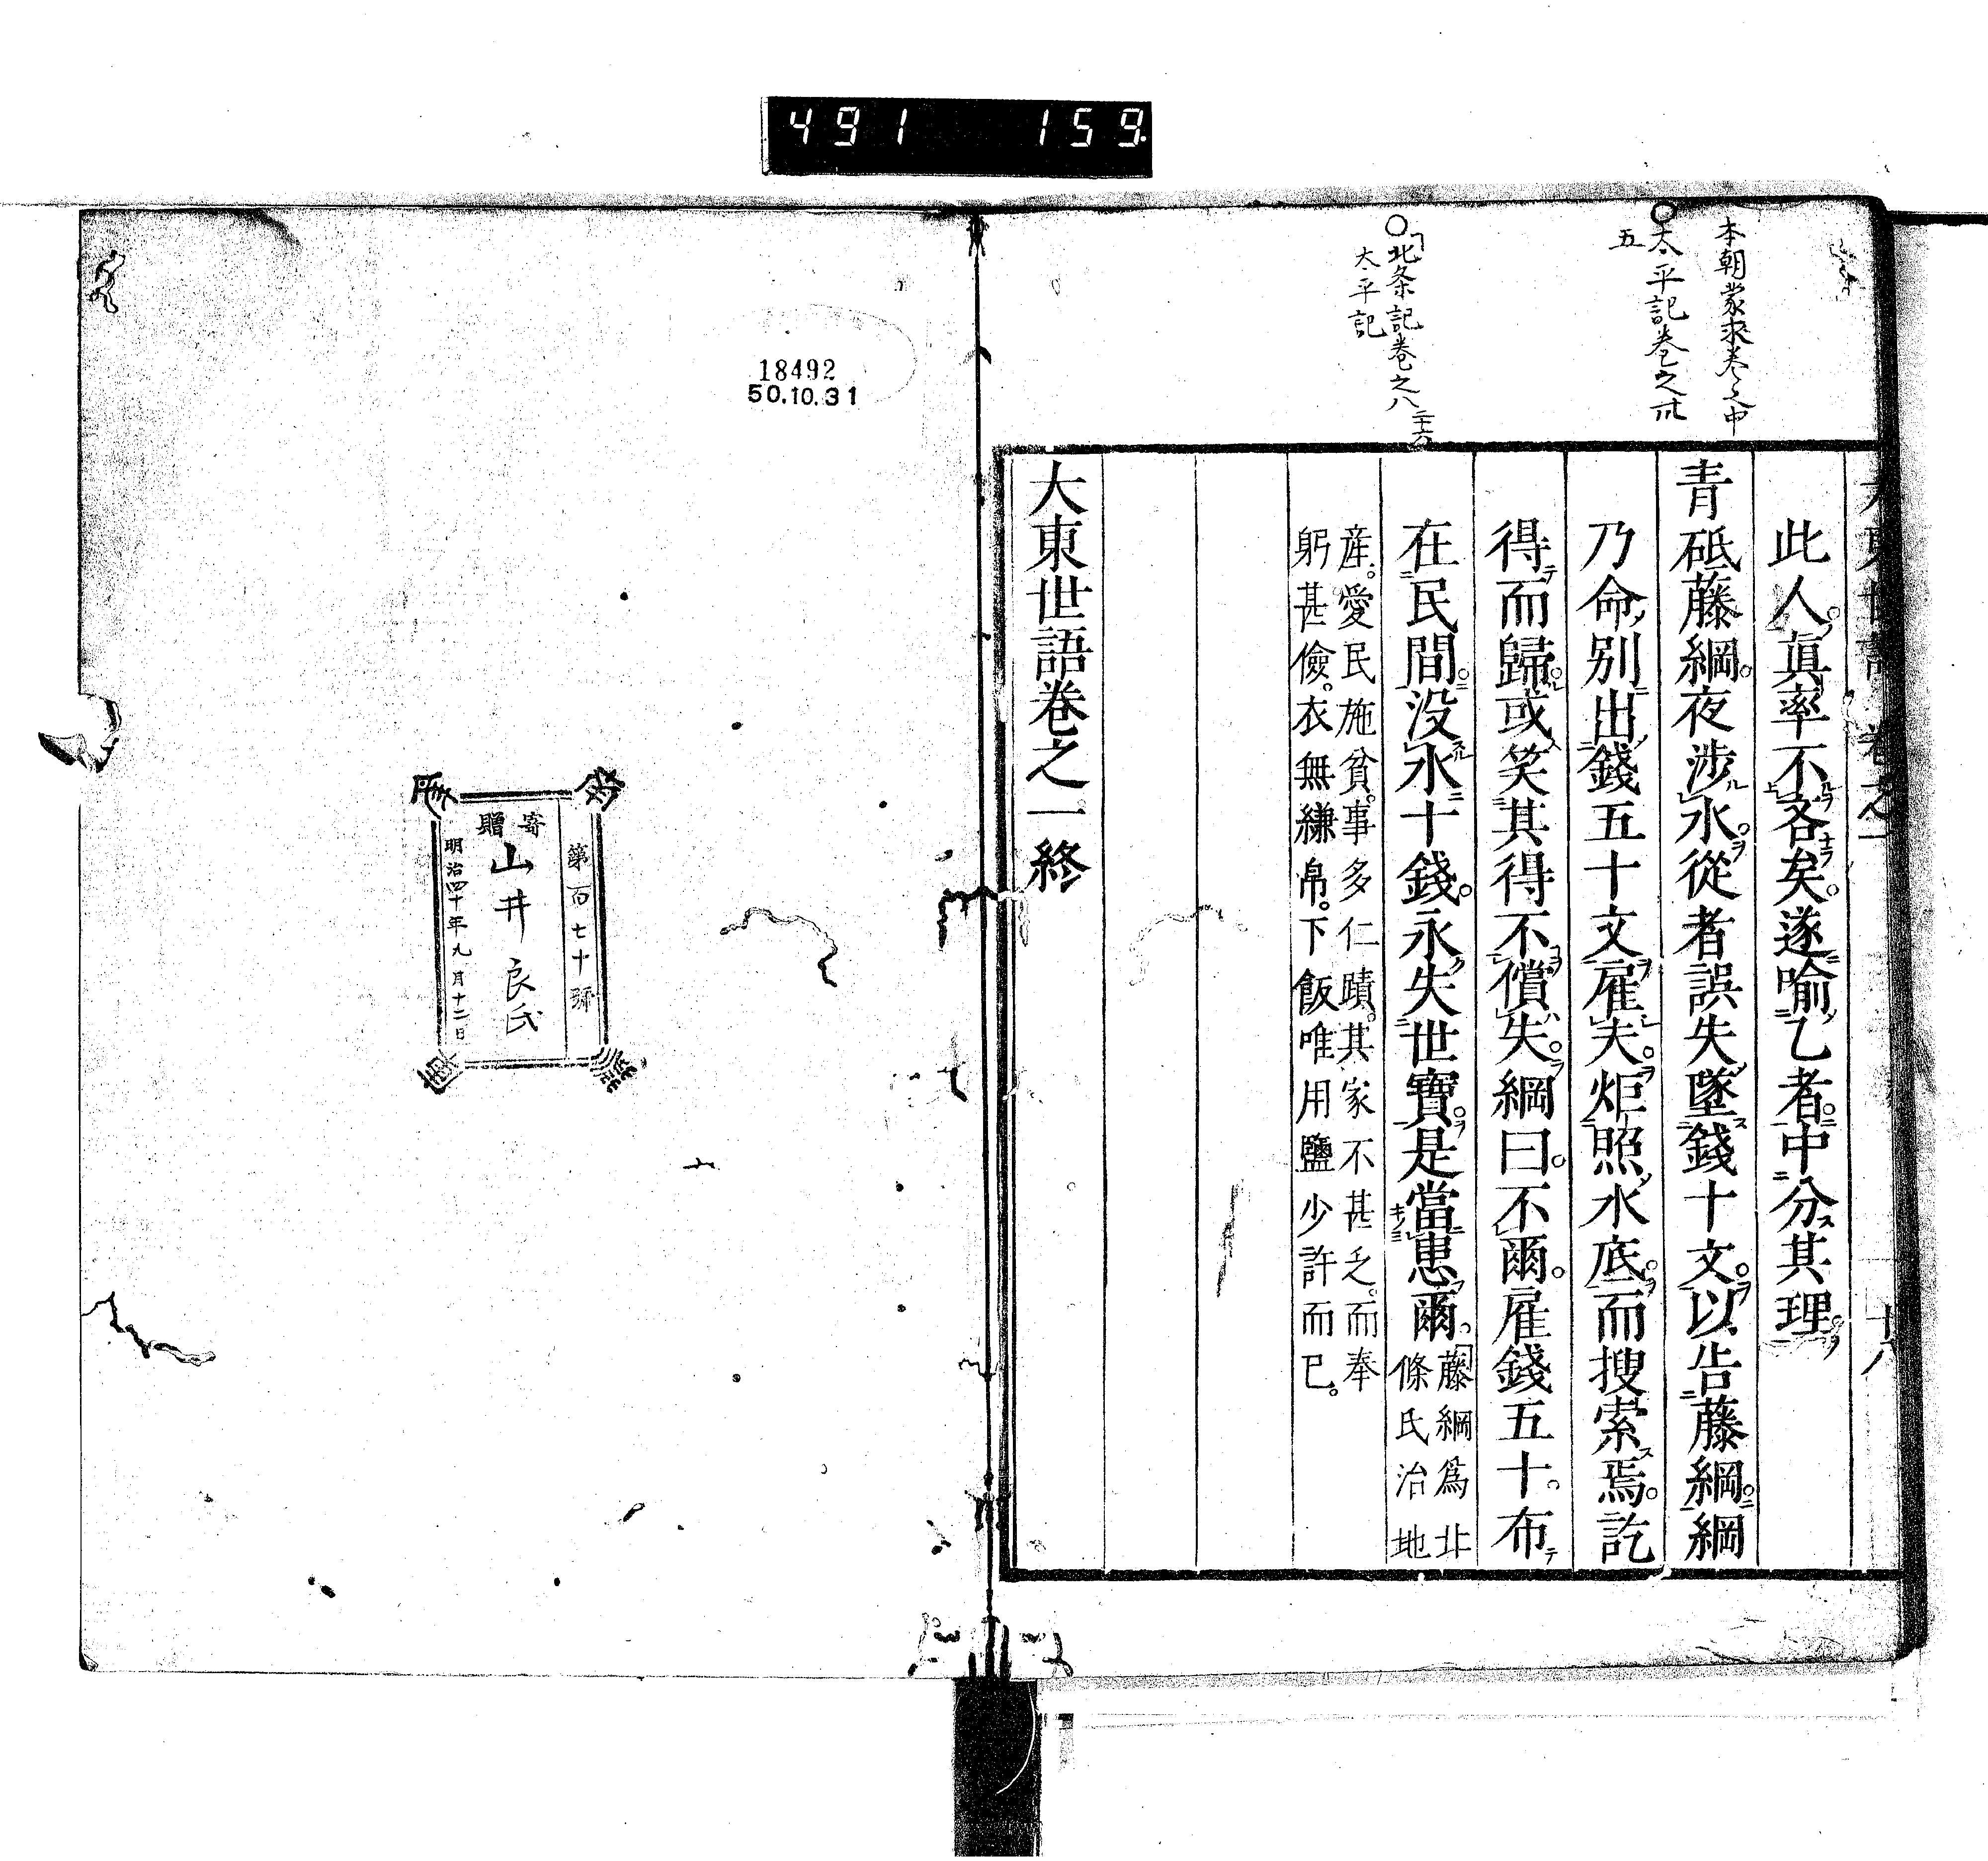 491 159
本朝蒙求巻之中
太平記巻之卅
五
北条記巻之八 二十六
太平記
大東世語 卷之一 十八
此人。眞率不吝矣。遂喻乙者。中分其理。
青砥藤綱。夜涉水。從者誤失墜錢十文。以告藤綱。綱
乃命別出錢五十文。雇夫。炬照水底。而搜索焉。訖
得而歸。或笑其得不償失。綱曰。不爾。雇錢五十。布
在民間。没水十錢。永失世寶。是當患爾。
藤綱爲北
條氏治地
産。愛民施貧。事多仁蹟。其家不甚乏。而奉
躬甚儉。衣無縑帛。下飯唯用鹽少許而已。
大東世語卷之一終
18492
50.10.31
第百七十號
寄贈
山井良氏
明治四十年九月十二日